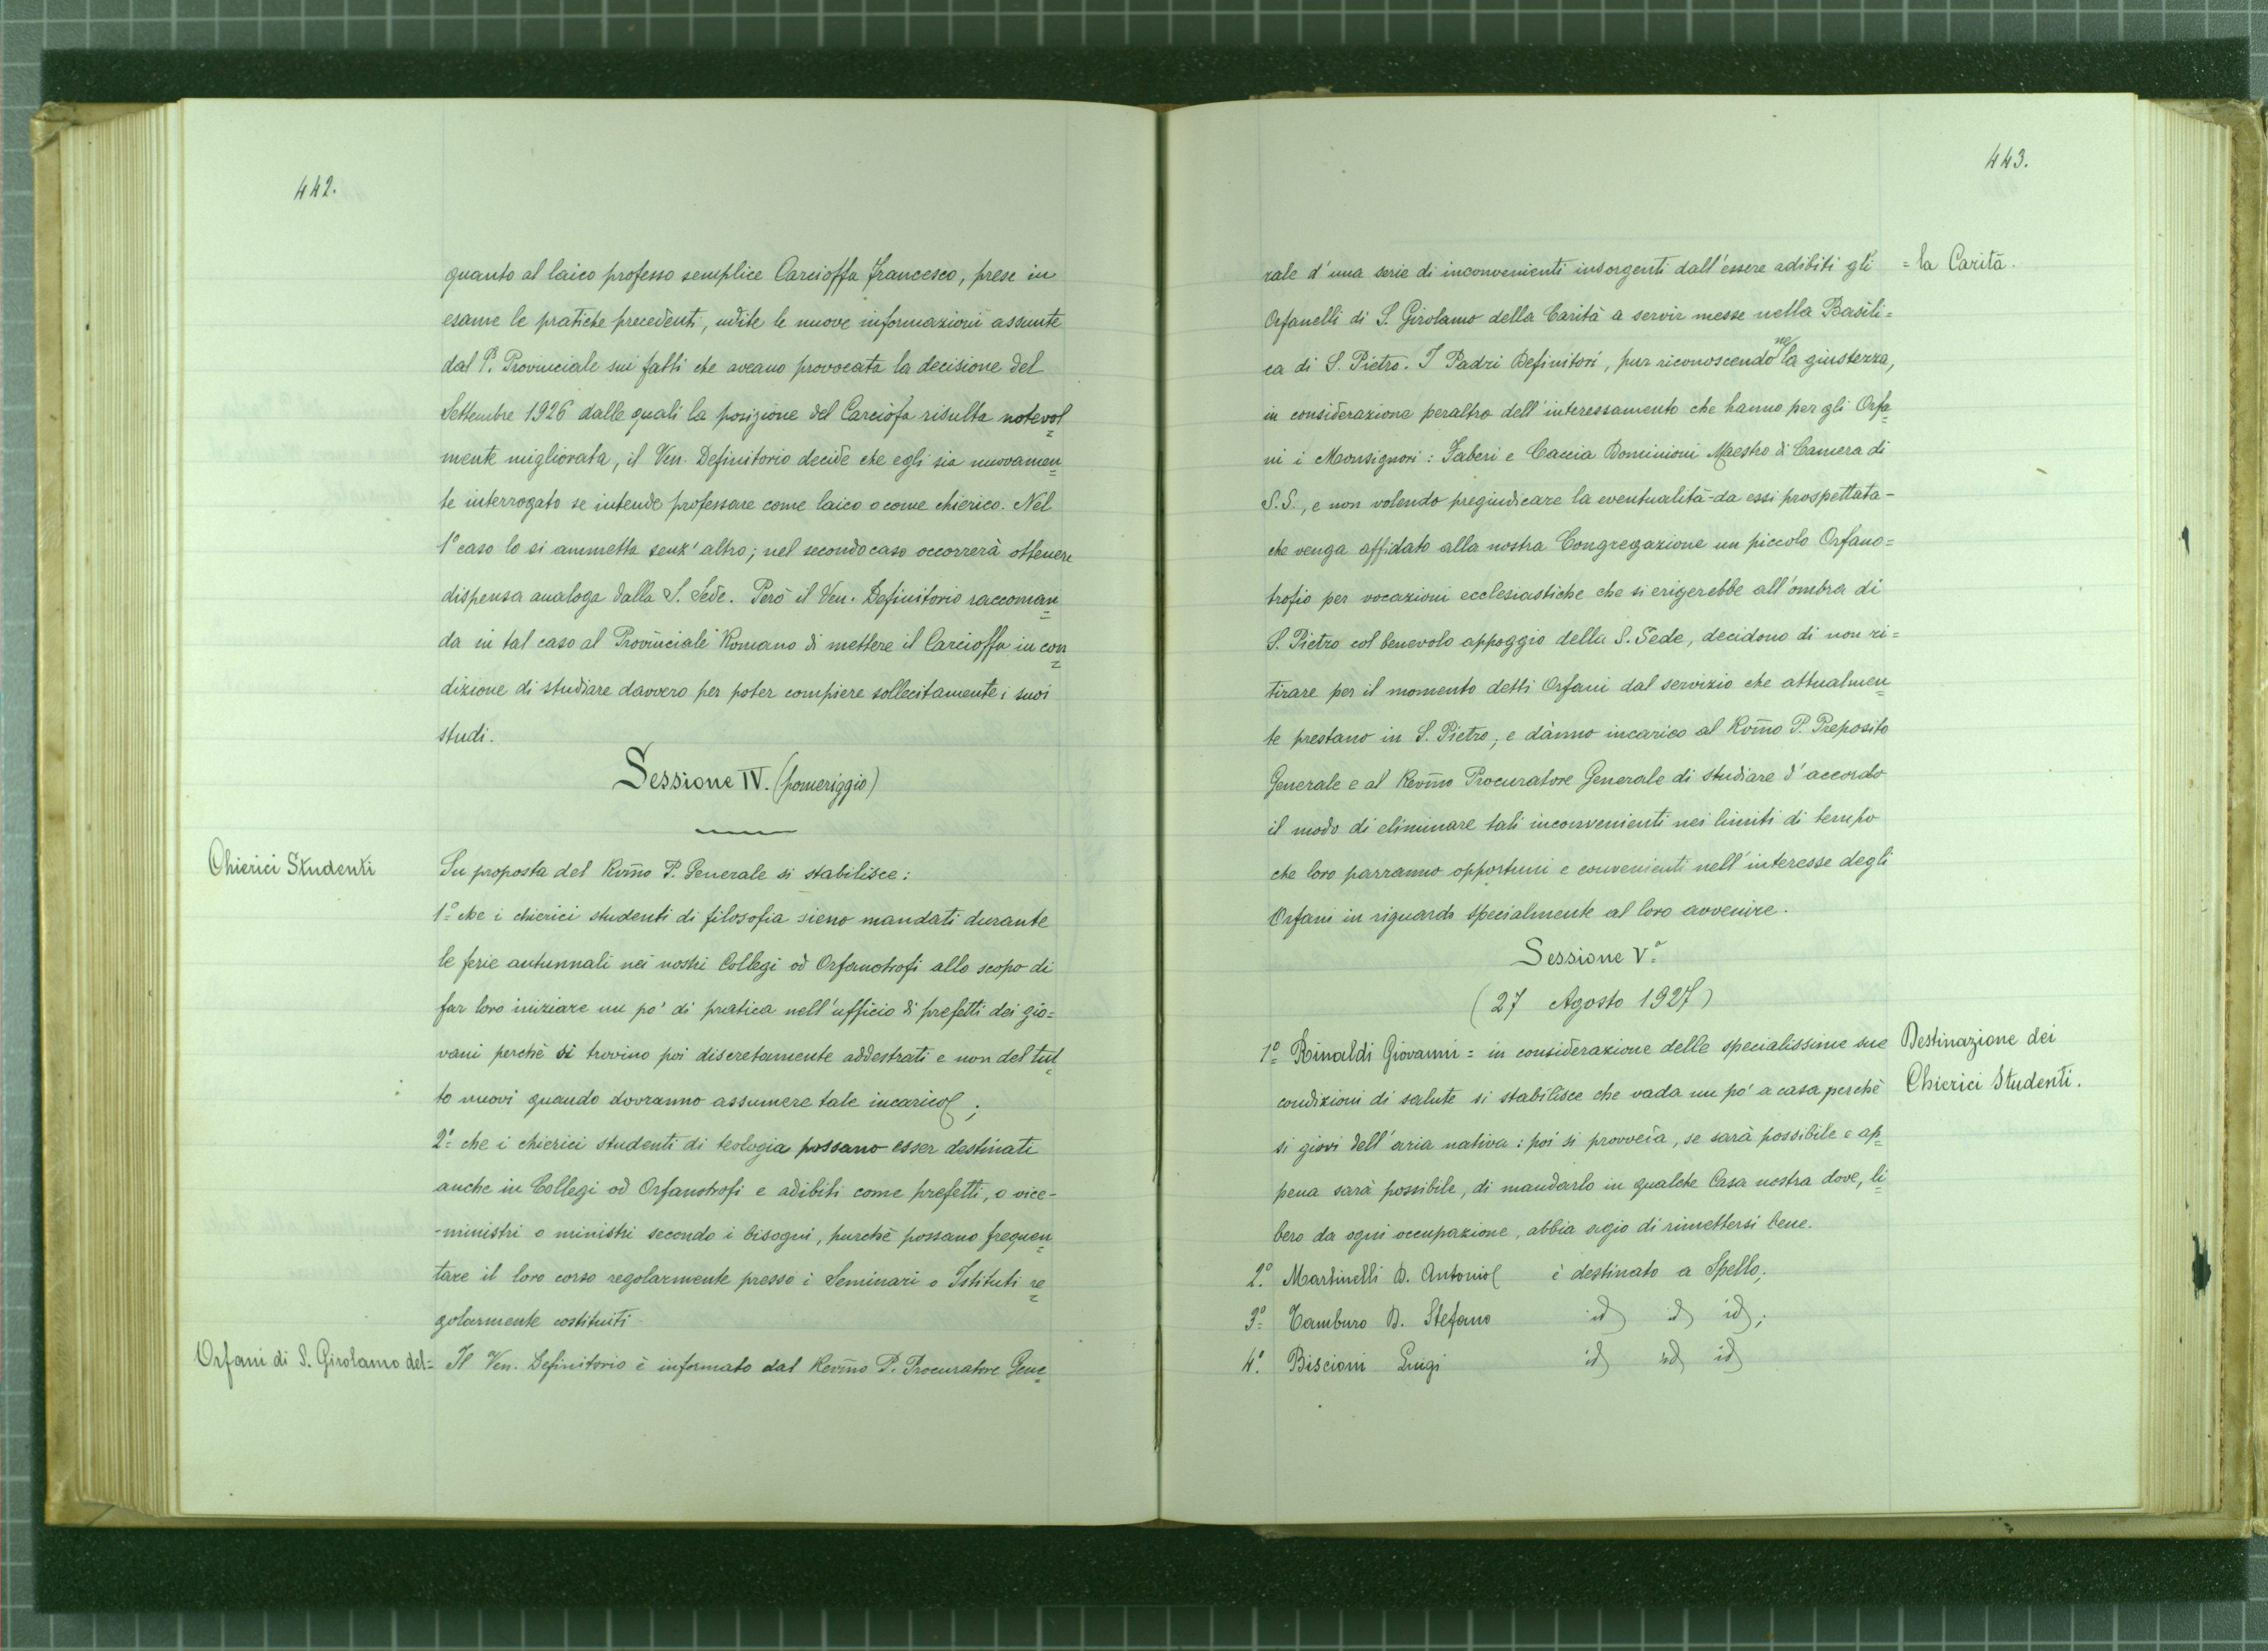 442.
quanto al laico professo semplice Carcioffa Francesco, prese in
esame le pratiche precedenti, udite le nuove informazioni assunte
dal P. Provinciale sui fatti che aveano provocata la decisione del
Settembre 1926 dalle quali la posizione del Carciofa risulta notevol
mente migliorata, il Ven. Definitorio decide che egli sia nuovamen
te interrogato se intende professare come laico o come chierico. Nel
1º caso lo si ammetta senz'altro; nel secondo caso occorrerà ottenere
dispensa analoga dalla S. Sede. Però il Ven. Definitorio raccoman
da in tal caso al Provinciale Romano di mettere il Carcioffa in con
dizione di studiare davvero per poter compiere sollecitamente i suoi
studi.
Sessione IV. (pomeriggio)
Chierici Studenti
Su proposta del Rv̄mo P. Generale si stabilisce:
1º che i chierici studenti di filosofia sieno mandati durante
le ferie autunnali nei nostri Collegi od Orfanotrofi allo scopo di
far loro iniziare un po' di pratica nell'ufficio di prefetti dei gio=
vani perchè si trovino poi discretamente addestrati e non del tut
to nuovi quando dovranno assumere tale incarico;
2º che i chierici studenti di teologia possano esser destinati
anche in Collegi od Orfanotrofi e adibiti come prefetti, o vice-
-ministri o ministri secondo i bisogni, purchè possano frequen
tare il loro corso regolarmente presso i Seminari o Istituti re
golarmente costituiti
Orfani di S. Girolamo del=
Il Ven. Definitorio è informato dal Rev̄mo P. Procuratore Gene
443.
rale d'una serie di inconvenienti insorgenti dall'essere adibiti gli
= la Carità.
Orfanelli di S. Girolamo della Carità a servir messe nella Basili=
ca di S. Pietro. I Padri Definitori, pur riconoscendone la giustezza,
in considerazione peraltro dell'interessamento che hanno per gli Orfa
ni i Monsignori: Faberi e Caccia Dominioni Maestro di Camera di
S.S., e non volendo pregiudicare la eventualità-da essi prospettata-
che venga affidato alla nostra Congregazione un piccolo Orfano=
trofio per vocazioni ecclesiastiche che si erigerebbe all'ombra di
S. Pietro col benevolo appoggio della S. Sede, decidono di non ri=
tirare per il momento detti Orfani dal servizio che attualmen
te prestano in S. Pietro, e dànno incarico al Rv̄mo P. Preposito
Generale e al Rev̄mo Procuratore Generale di studiare d'accordo
il modo di eliminare tali inconvenienti nei limiti di tempo
che loro parranno opportuni e convenienti nell'interesse degli
Orfani in riguardo specialmente al loro avvenire.
Sessione Vª
(27 Agosto 1927)
Destinazione dei
Chierici Studenti.
1º Rinaldi Giovanni = in considerazione delle specialissime sue
condizioni di salute si stabilisce che vada un pò a casa perchè
si giovi dell'aria nativa: poi si provveda, se sarà possibile e ap
pena sarà possibile, di mandarlo in qualche Casa nostra dove, li
bero da ogni occupazione, abbia agio di rimettersi bene.
2º Martinelli D. Antonio è destinato a Spello;
3º Tamburo D. Stefano id id id;
4º Biscioni Luigi id id id